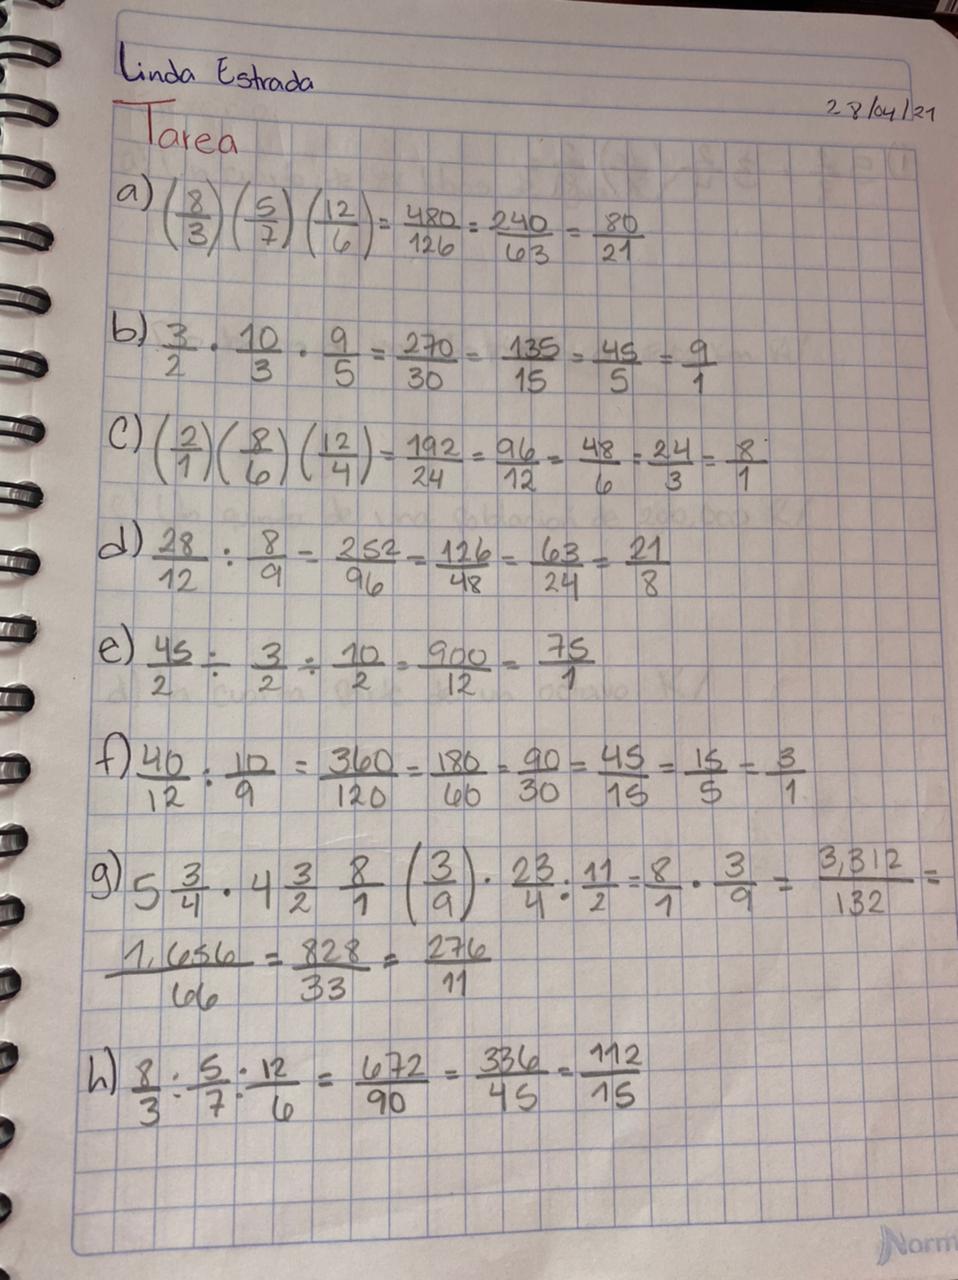 Linda Estrada
28/04/21
Tarea
a) (8/3) (5/7) (12/6) = 480/126 = 240/63 = 80/21
b) 3/2 · 10/3 · 9/5 = 270/30 = 135/15 = 45/5 = 9/1
c) (2/1) (8/6) (12/4) = 192/24 = 96/12 = 48/6 = 24/3 = 8/1
d) 28/12 : 8/9 = 252/96 = 126/48 = 63/24 = 21/8
e) 45/2 ÷ 3/2 ÷ 10/2 = 900/12 = 75/1
f) 40/12 : 10/9 = 360/120 = 180/60 = 90/30 = 45/15 = 15/5 = 3/1
g) 5 3/4 · 4 3/2 8/1 (3/9) · 23/4 : 11/2 = 8/1 · 3/9 = 3,312/132 =
1,656/66 = 828/33 = 276/11
h) 8/3 : 5/7 : 12/6 = 672/90 = 336/45 = 112/15
Norm